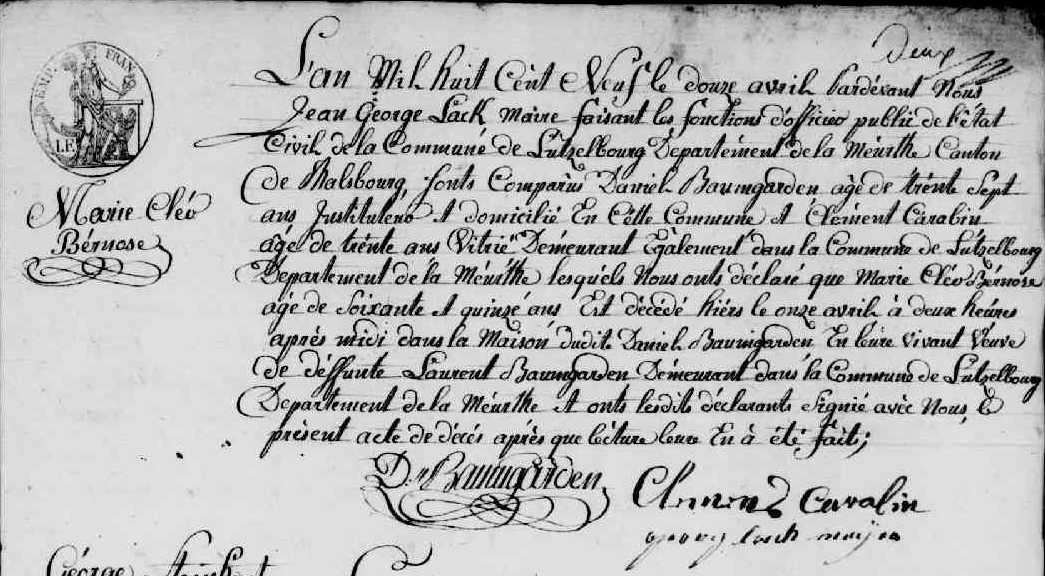 deux
L'an Mil huit Cent Neuf le douze avril Pardevant Nous
EMP. FRAN
Jean George Lack Maire faisant les fonctions d'officier public de l'état
Civil de la Communé de Lutzelbourg Département de la Méurthe Canton
de Phalsbourg, fonts Comparus Daniel Baumgarden agé de trénte Sept
Marie Cléo
Bérnose
ans Justituteur et domicilié En Cétte Commune et Clément Carabin
agé de trénte ans Vitrié Démeurant Egalement dans la Commune de Lutzelbourg
Département de la Méurthe lesquéls Nous onts déclaré que Marie Cléo Bérnose
agé de Soixante et quinzé ans Est décédé hiérs le onze avril à deux héures
aprés midi dans la Maison dudit Daniel Baumgarden En leure vivant Veuve
de déffunte Laurent Baumgarden Démeurant dans la Commune de Lutzelbourg
Département de la Méurthe et onts lesdits déclarants Signié avéc Nous, le
présent acte de décés aprés que lécture leure En à été fait;
D. Baumgarden
Clemend Caralin
georg lack
George